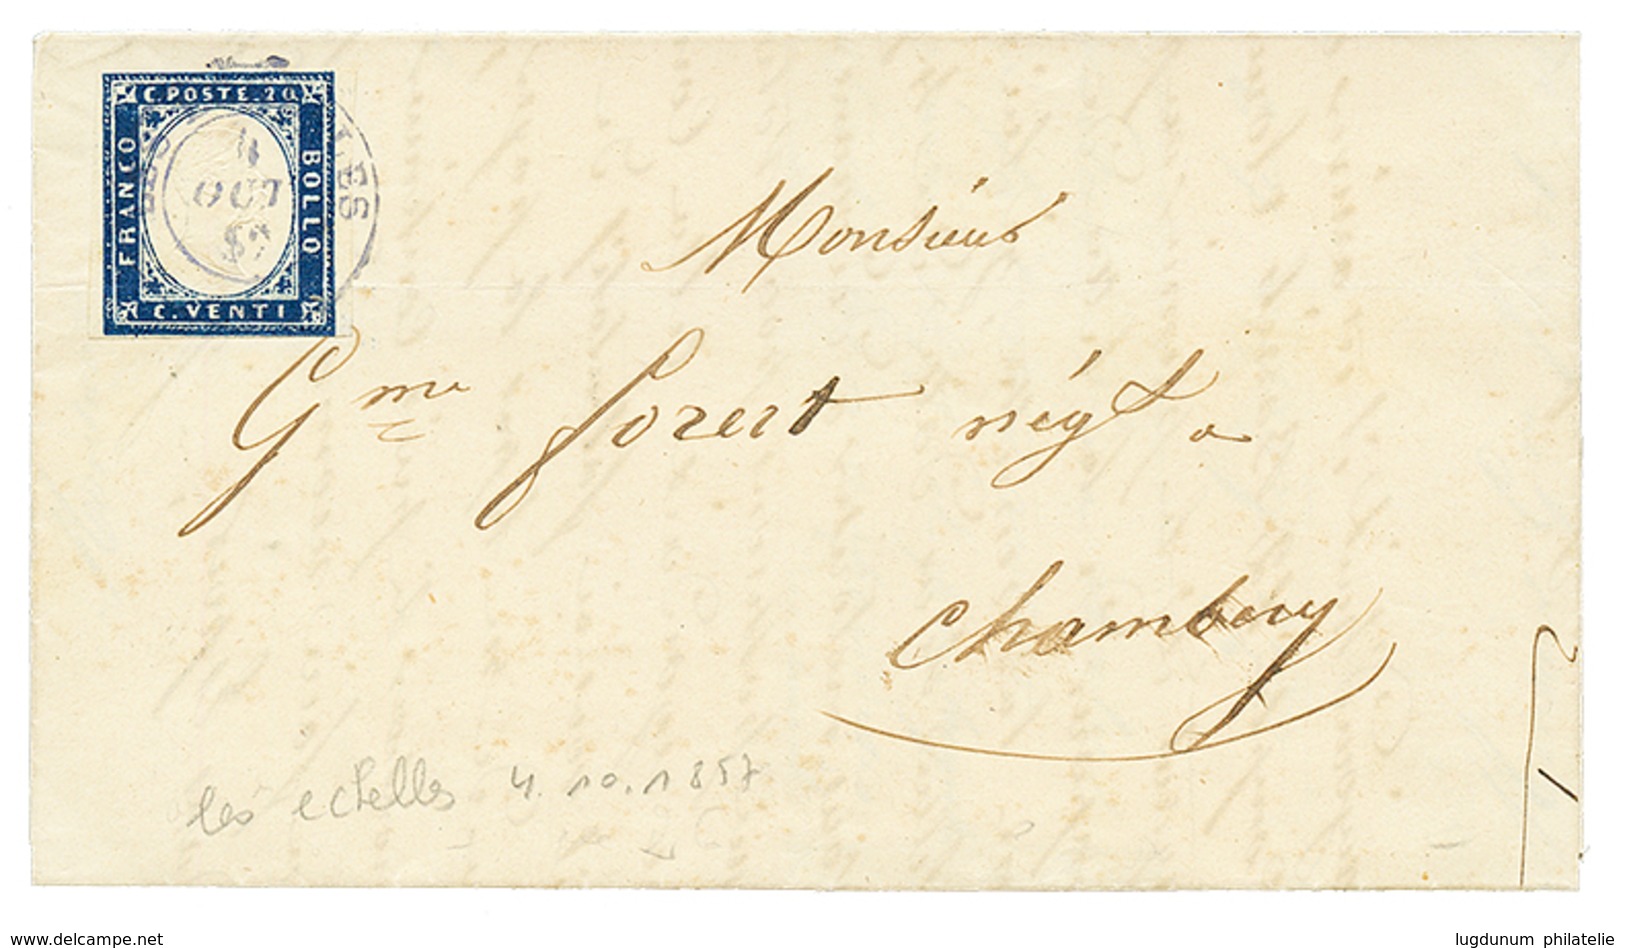 C. POSTE. 20
FRANCO
BOLLO
C. VENTI
LES
4
OCT
57
Monsieur
Gme forest négt a
Chambery
les echelles 4.10.1857
www.delcampe.net
lugdunum philatelie